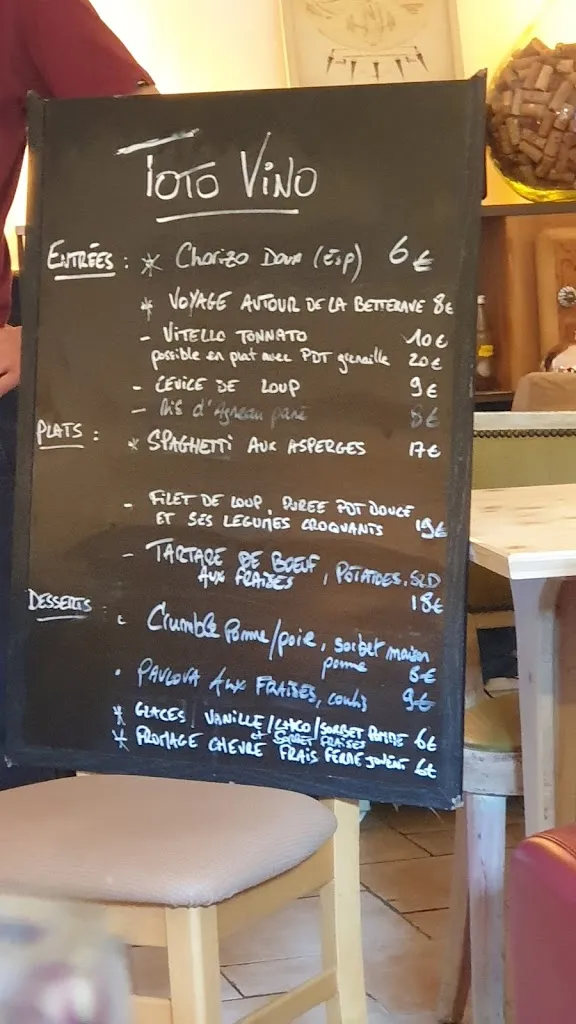 TOTO VINO
ENTRÉES : * Chorizo Doux (Esp) 6€
* VOYAGE AUTOUR DE LA BETTERAVE 8€
- VITELLO TONNATO 10€
possible en plat avec PDT grenaille 20€
- CEVICE DE LOUP 9€
- Ris d'Agneau pané 8€
PLATS : * SPAGHETTI AUX ASPERGES 17€
- FILET DE LOUP, PUREE PDT DOUCE
ET SES LEGUMES CROQUANTS 19€
- TARTARE DE BŒUF, POTATOES, SLD
AUX FRAISES 18€
DESSERTS :
Crumble Pomme/poire, sorbet maison
pomme 8€
. PAVLOVA AUX FRAISES, coulis 9€
* GLACES VANILLE/CHOCO/SORBET POMME 6€
et SORBET FRAISES
* FROMAGE CHEVRE FRAIS FERME 6€